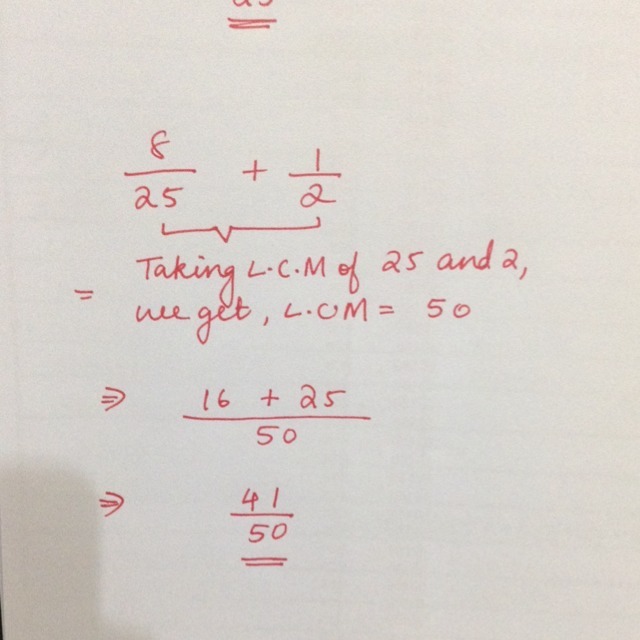 8/25 + 1/2
= Taking L.C.M of 25 and 2,
we get, L.CM = 50
⇒ 16 + 25/50
⇒ 41/50